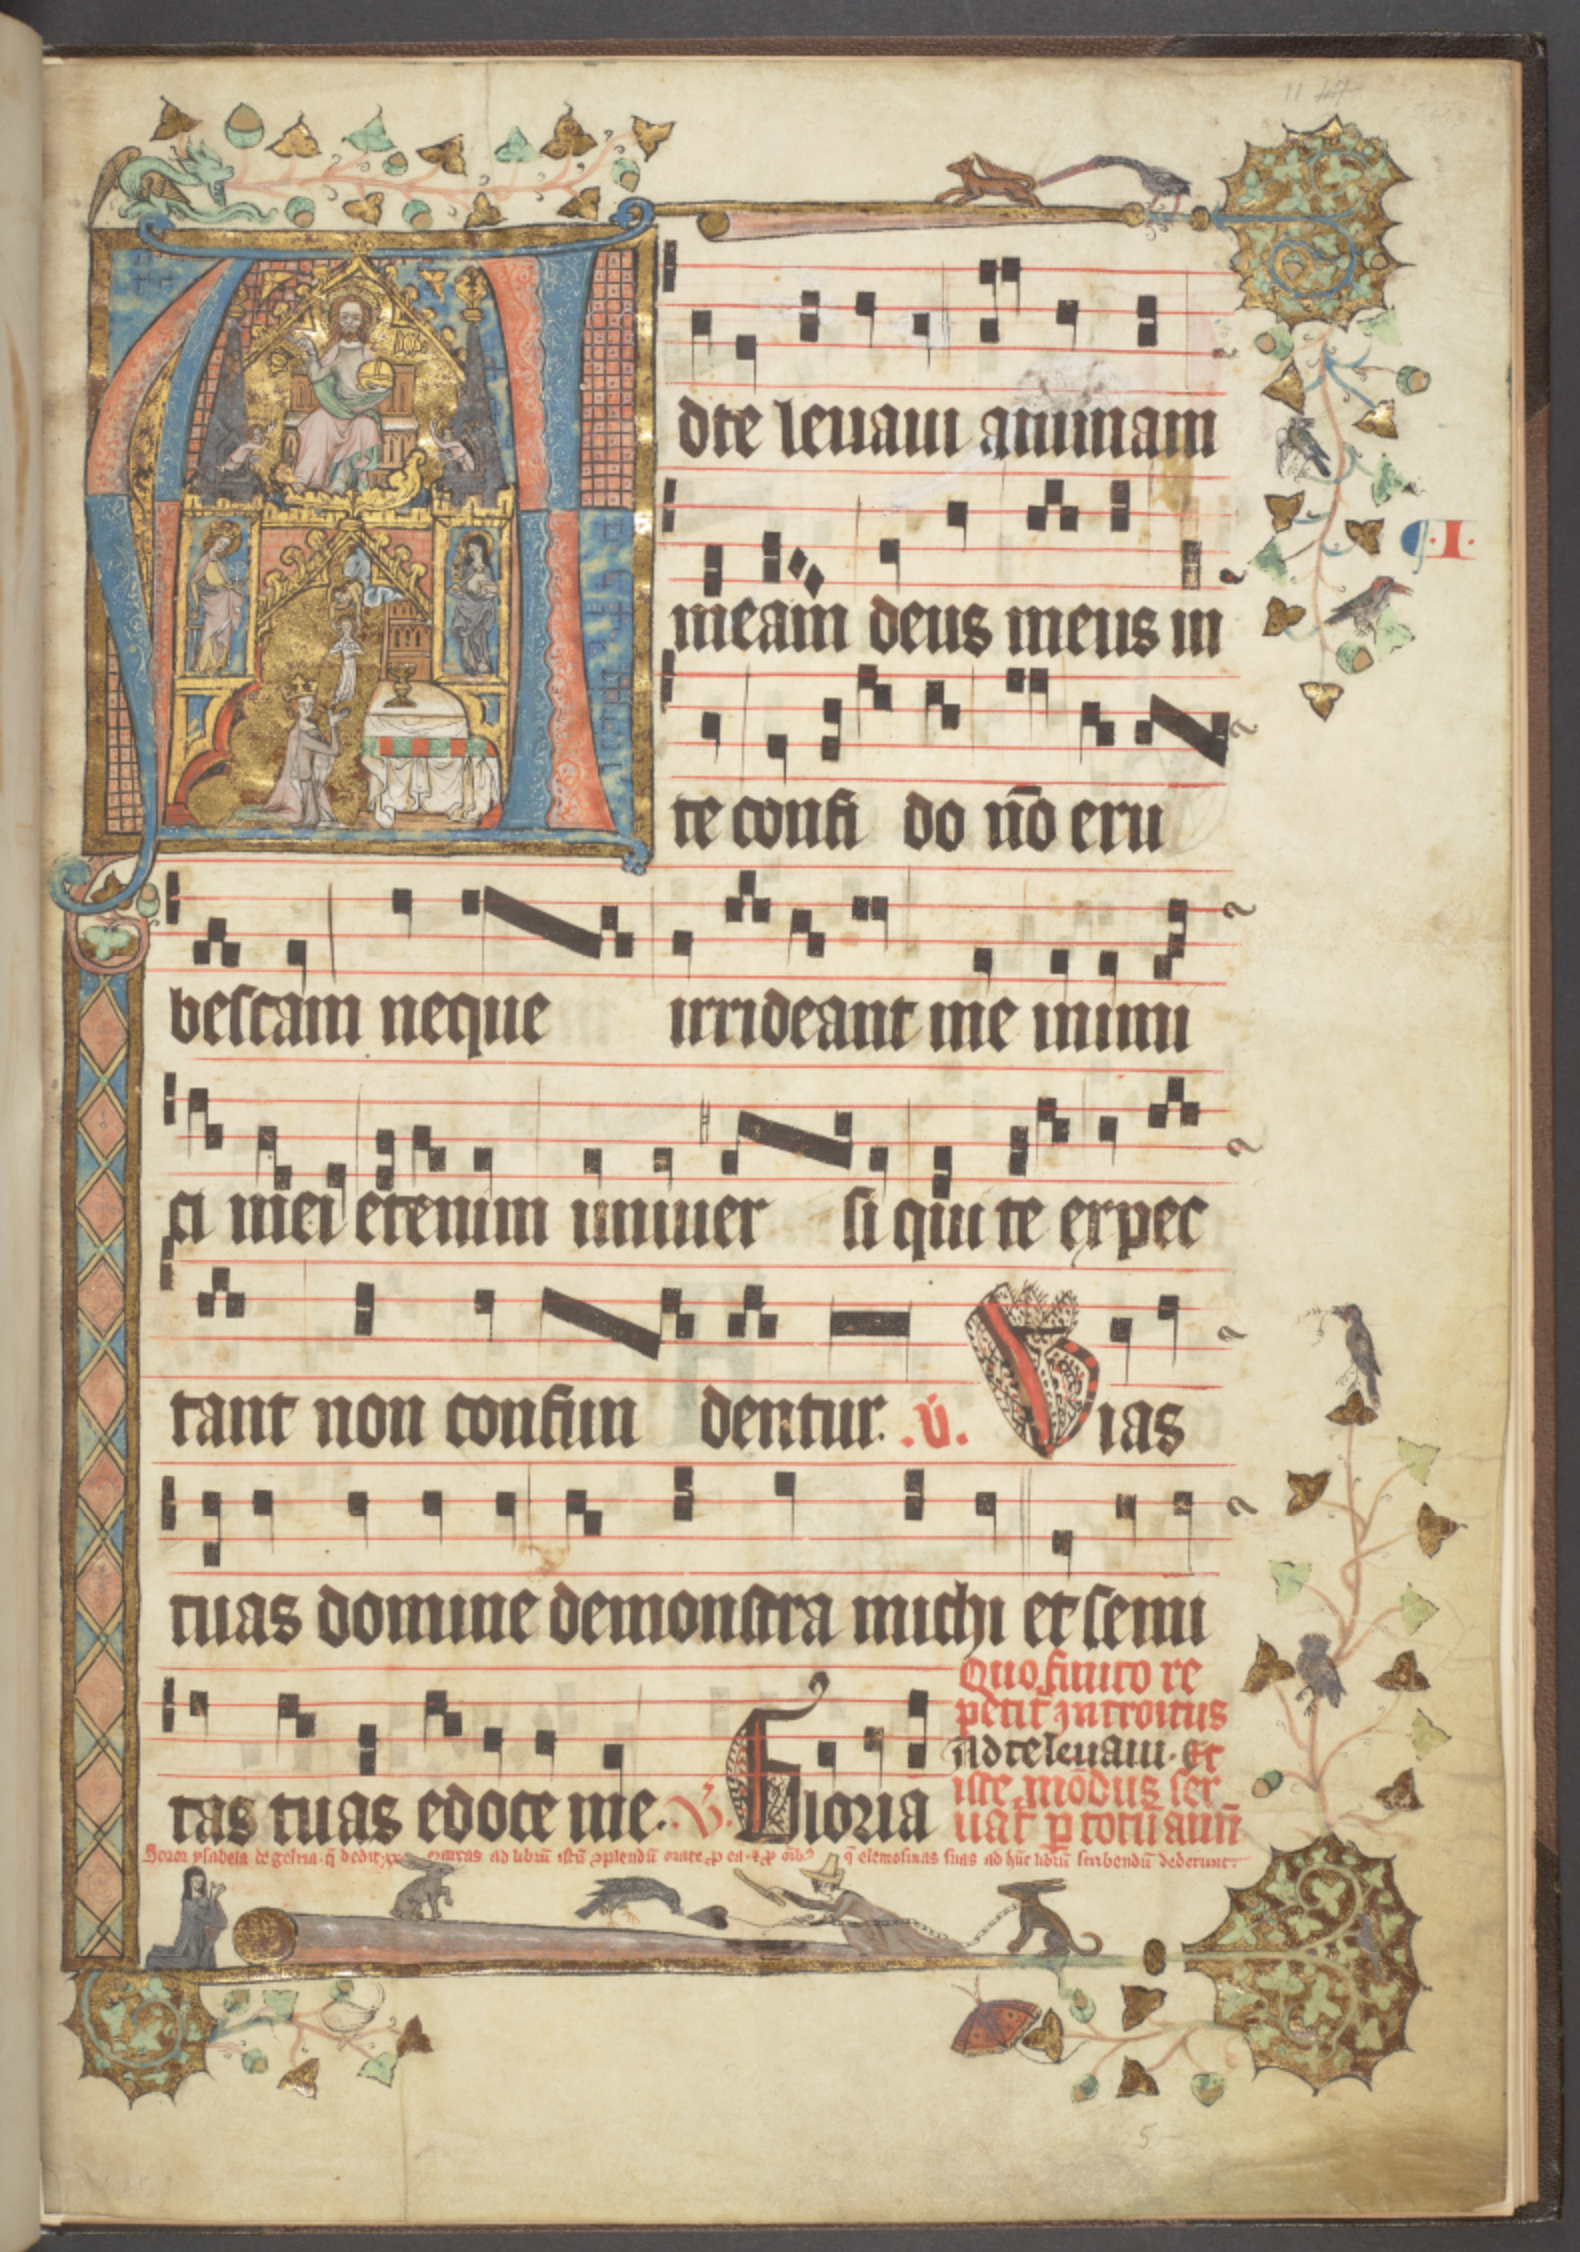 Adte leuaui animam
meam deus meus in
te confi do nō eru
bescam neque irrideant me inimi
ci mei etenim uniuer si qui te expec
tant non confun dentur. .v̄. Vias
tuas domine demonstra michi et semi
tas tuas edoce me. V̄. Gloria
Quo finito re
petit̄ introitus
Adteleuaui. Et
iste modus ser
uat̄ p totū ann̄
Soror ysabela de gelria q̄ dedit ad librū istū orate p ea q̄ elemosinas suas ad hūc librū scribendū dederunt.
.I.
11
5